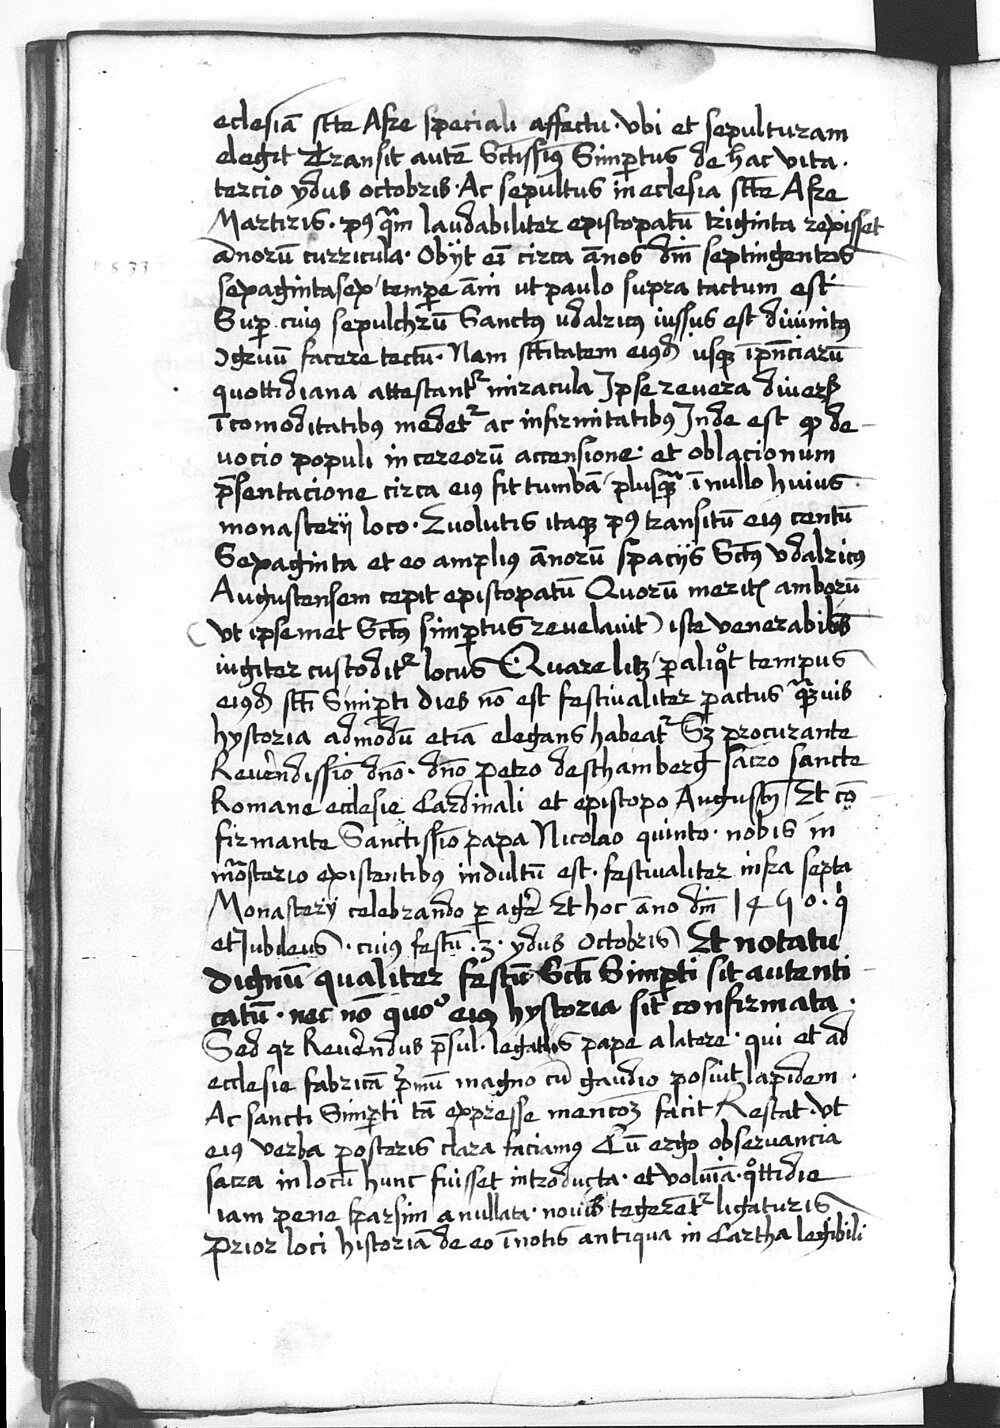 eclesiā sctē Afre speciali affectu · Vbi et sepulturam
elegit Transit autē Sctissim9 Simpertus de hac vita ·
tercio ydus octobris · Ac sepultus in eclesia sctē Afre
Martiris · p9 q̄m laudabiliter episcopatū triginta rexisset
annorū curricula · Obijt eī circa ānos dm̄ septingentos
1833
sexaginta sex tempore
ut paulo supra tactum est
Sup cui9 sepulchrū Sanct9 vdalric9 iussus est diuinit9
facere tectū · Nam sctītatem ei9d usq3 ī pn̄ciarū
quottidiana attestantr miracula Ipse reuera diuersis
īcomoditatibus medetr ac infirmitatibus Inde est q de-
uocio populi in cereorū accensione · et oblacionum
pn̄sentacione circa ei9 fit tumbā plusq̄3 ī nullo huius
monasterij loco · Euolutis itaq3 p9 transitū ei9 centū
Sexaginta et eo ampli9 annorū spacijs Sct9 vdalric9
Augustensem cepit episcopatū Quorū meritis amborū
(vt ipsemet Sct9 simpertus reuelauit) iste venerabilis
iugiter custoditr locus Quare lic3 p aliqot tempus
ei9d sctī Simperti dies nō est festiualiter pactus q̄3uis
hystoria admodū etiā elegans habeatr S3 procurante
Reuerendissīo dn̄o · dn̄o petro de schamberg sacro sancte
Romane ecclesie Cardinali et episcopo Augustn̄ Et cō-
firmante Sanctissīo papa Nicolao quinto · nobis in
mōsterio existentibus indultū est · festiualiter infra septa
Monasterij celebrando p agere Et hoc āno dm̄ 1450 ·
et Jubileus · cuius festū · 3 · ydus Octobris Et notatu
dignū qualiter festū Sctī Simperti sit autenti-
catū · nec nō quo ei9 hystoria sit confirmata ·
Sed qr Reuerendus pn̄sul · legatus pape a latere · qui et ad
ecclesie fabricā primū magno cū gaudio posiut lapidem ·
Ac sancti Simperti tā expresse mencoē3 facit Restat · vt
ei9 verba posteris clara faciam9 Cū ergo obseruancia
sacra in locū hunc fuisset introducta · et volumīa · qottidie
iam pene sparsim anullata · nouis tegerētr ligaturis
Prior loci historiā de eo ī notis antiqua in Cartha legibili